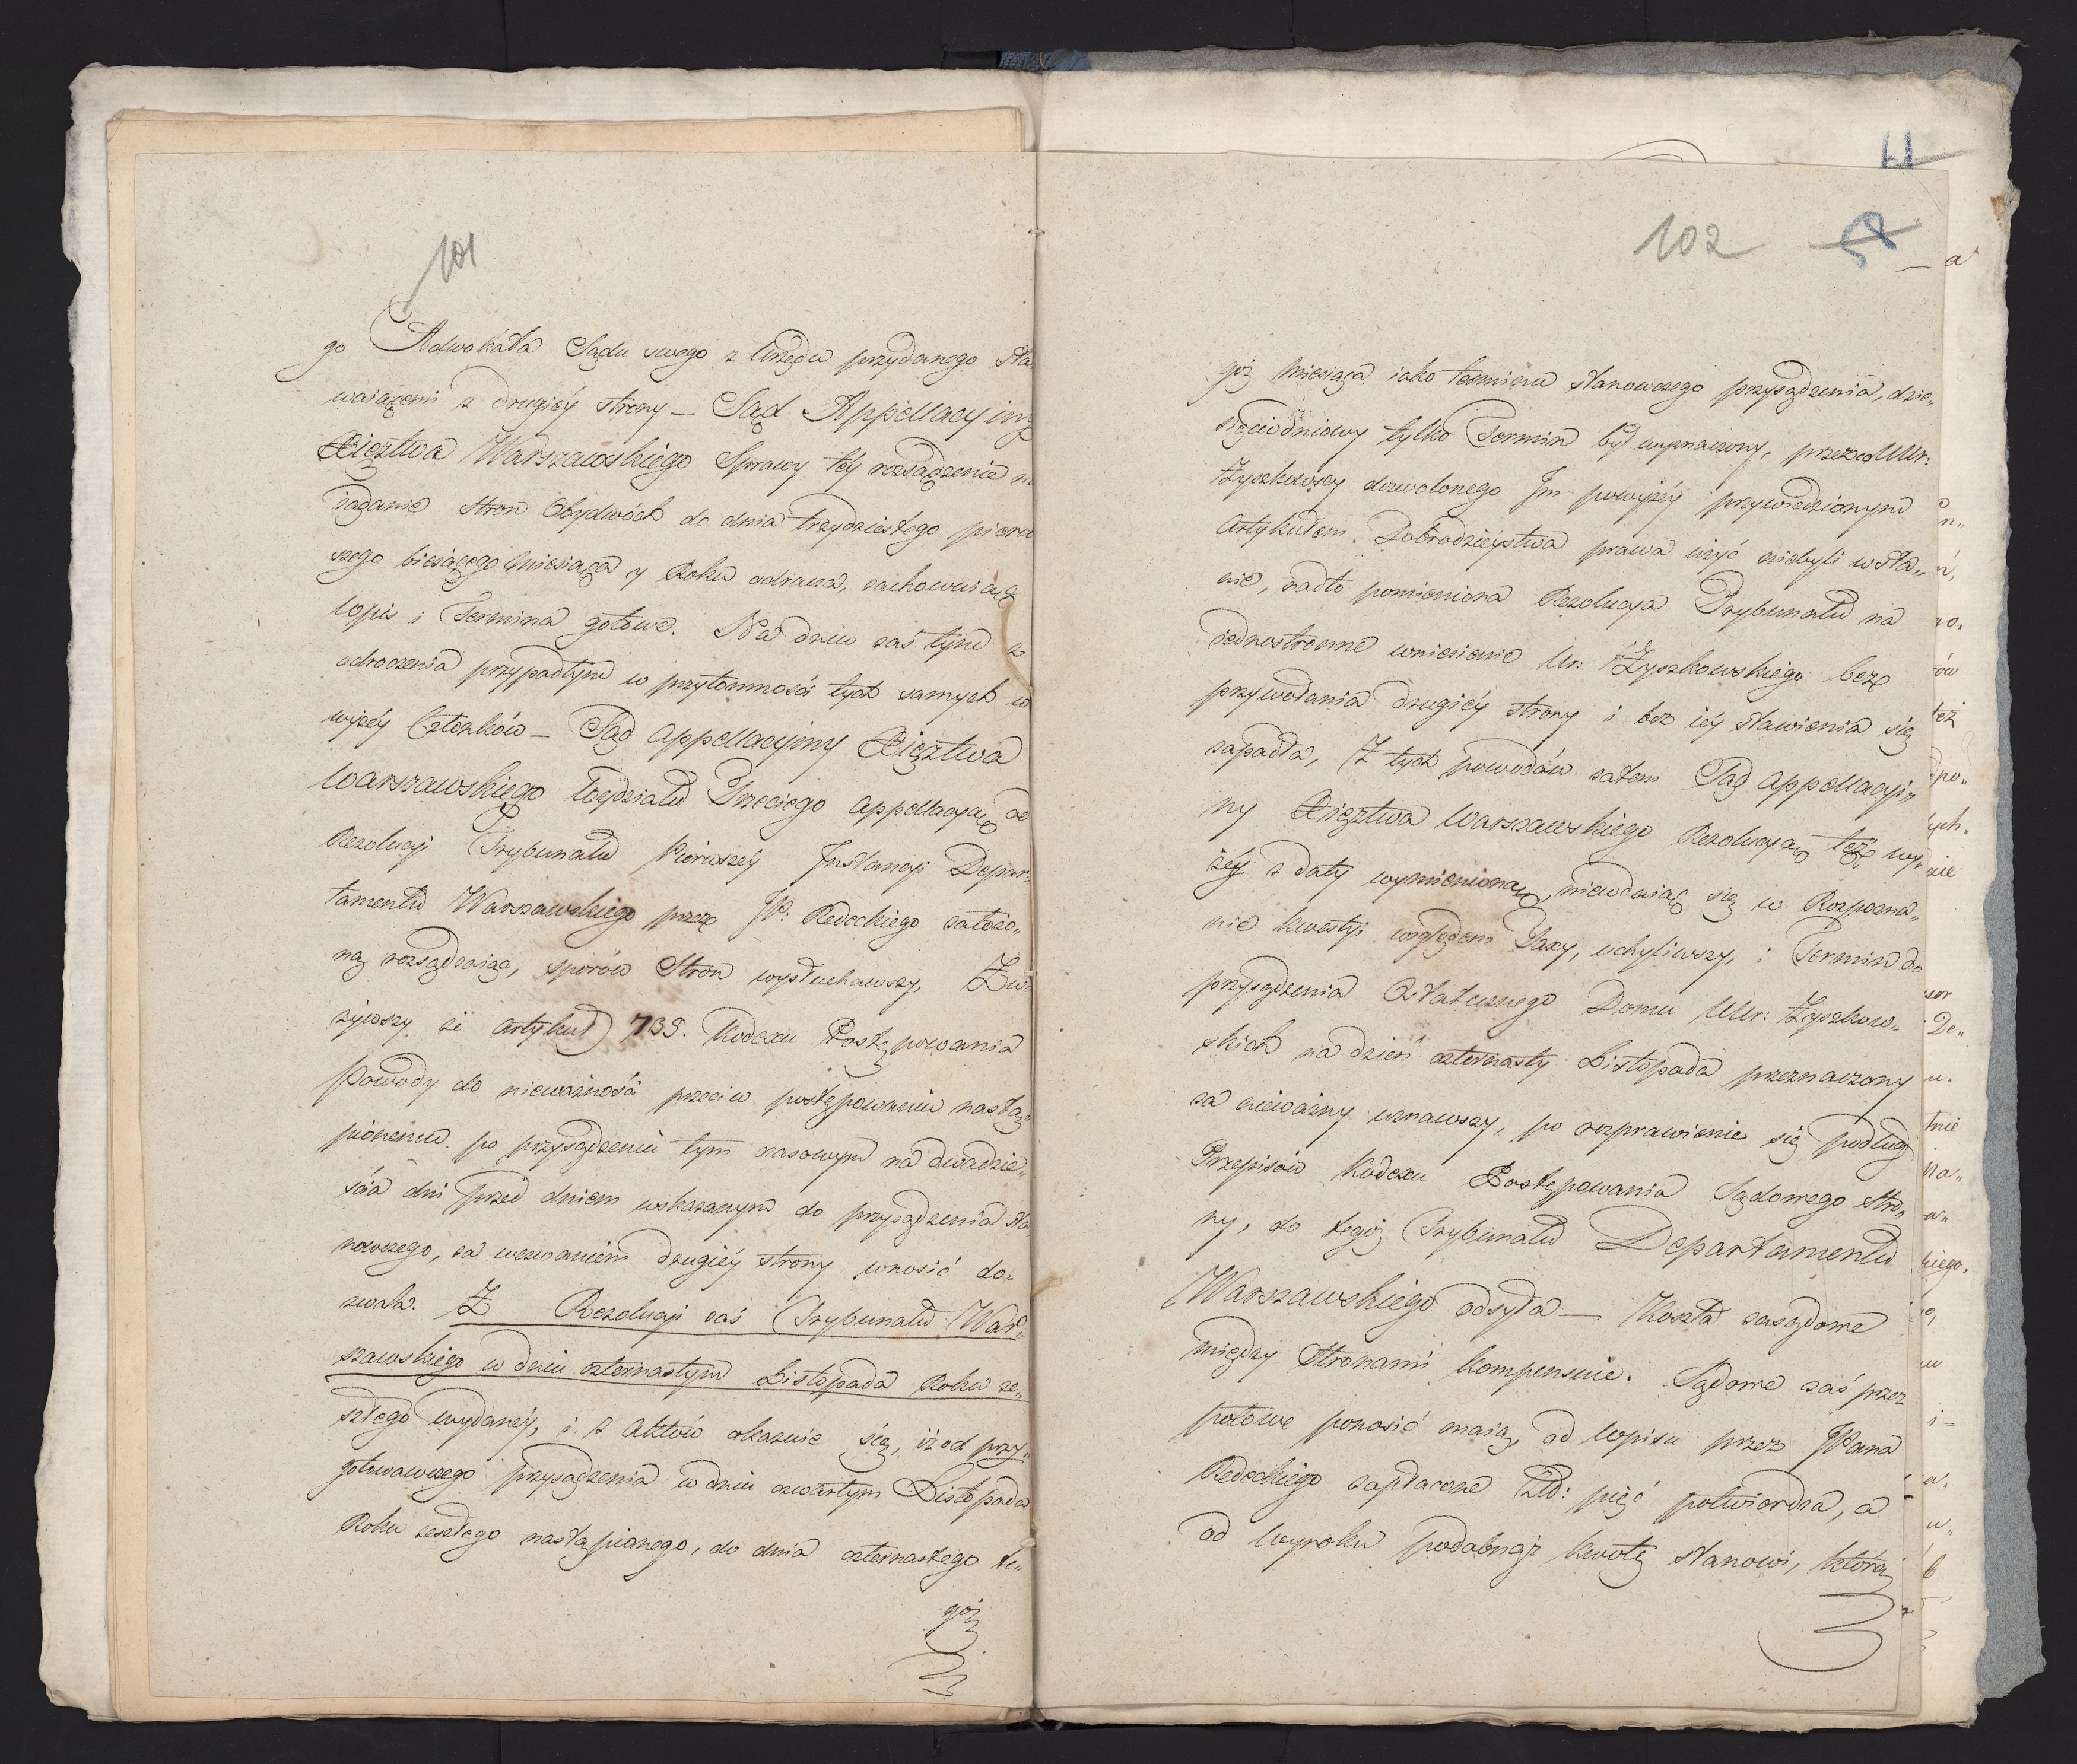 101
go Adwokata Sądu swego z Urzędu przydanego sta
waiącemi z drugiéy strony – Sąd Appellacyiny
Xięztwa Warszawskiego Sprawy téy rozsądzenie na
żądanie stron Obydwóch do dnia trzydziestego pierw
szego bieżącego Miesiąca y Roku odracza, zachowuiąc
Wpis i Termina gotowe. Na dniu zaś tym z
odroczenia przypadłym w przytomności tych samych w
wyżéy Członków – Sąd Appellacyiny Xięztwa
Warszawskiego Wydziału Trzeciego Appellacyą od
Rezolucyi Trybunału Pierwszéy Instancyi Depar„
tamentu Warszawskiego przez JP: Redeckiego założo„
ną rozsądzaiąc, sporów Stron wysłuchawszy, Zwa
żywszy że Artykuł 735. Kodexu Postępowania
Powody do nieważności przeciw postępowaniu nastą„
pionemu po przysądzeniu tym czasowym na dwadzie„
ścia dni przed dniem wskazanym do przysądzenia sta
nowczego, za wezwaniem drugiéy strony wnosić do„
zwala. Z Rezolucyi zaś Trybunału War„
szawskiego w dniu czternastym Listopada Roku ze„
szłego wydanéy, i z Aktów okazuie się, iż od przy„
gotowawczego przysądzenia w dniu czwartym Listopada
Roku zeszłego nastąpionego, do dnia czternastego te„
goż
61
102
goż Miesiąca iako terminu stanowczego przysądzenia, dzie„
sięciodniowy tylko Termin był wyznaczony, przez co UUr:
Zyszkowscy dozwolonego Im powyżéy przywiedzionym
Artykułem Dobrodzieystwa prawa użyć niebyli w sta„
nie, nadto pomieniona Rezolucya Trybunału na
iednostronne wniesienie Ur: Zyszkowskiego bez
przywołania drugiéy strony i bez iéy stawienia się
zapadła, Z tych powodów zatem Sąd Appellacyi„
ny Xięztwa Warszawskiego Rezolucyą też wy„
żéy z daty wymienioną, niewdaiąc się w Rozpozna„
nie kwestyi względem Taxy, uchyliwszy, i Termin do
przysądzenia Ostatecznego Domu UUr: Zyszkow„
skich na dzień czternasty Listopada przeznaczony
za nieważny uznawszy, po rozprawienie się podług
Przepisów Kodexu Postępowania Sądowego Stro„
ny, do tegoż Trybunału Departamentu
Warszawskiego odsyła – Koszta zasądowe
między Stronami kompensuie. Sądowe zaś przez
połowę ponosić maią, od wpisu przez JPana
Redeckiego zapłacone Złł: pięć potwierdza, a
od Wyroku podobnąż kwotę stanowi, którą